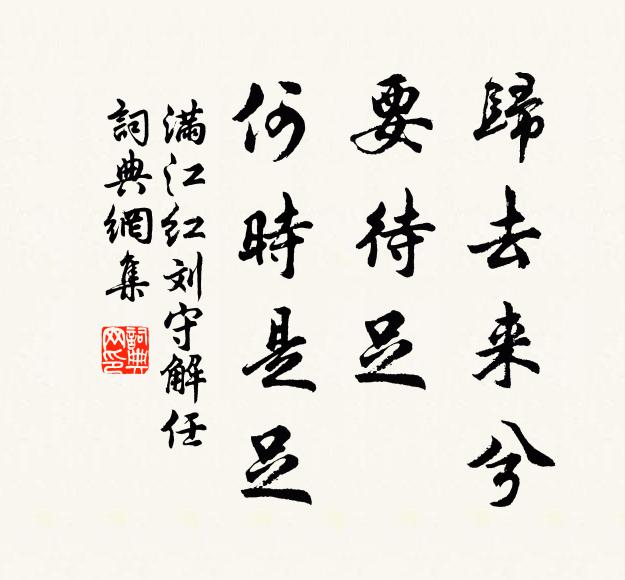 歸去来兮
要待足
何時是足
满江红刘守解任
詞典網集
詞典网印